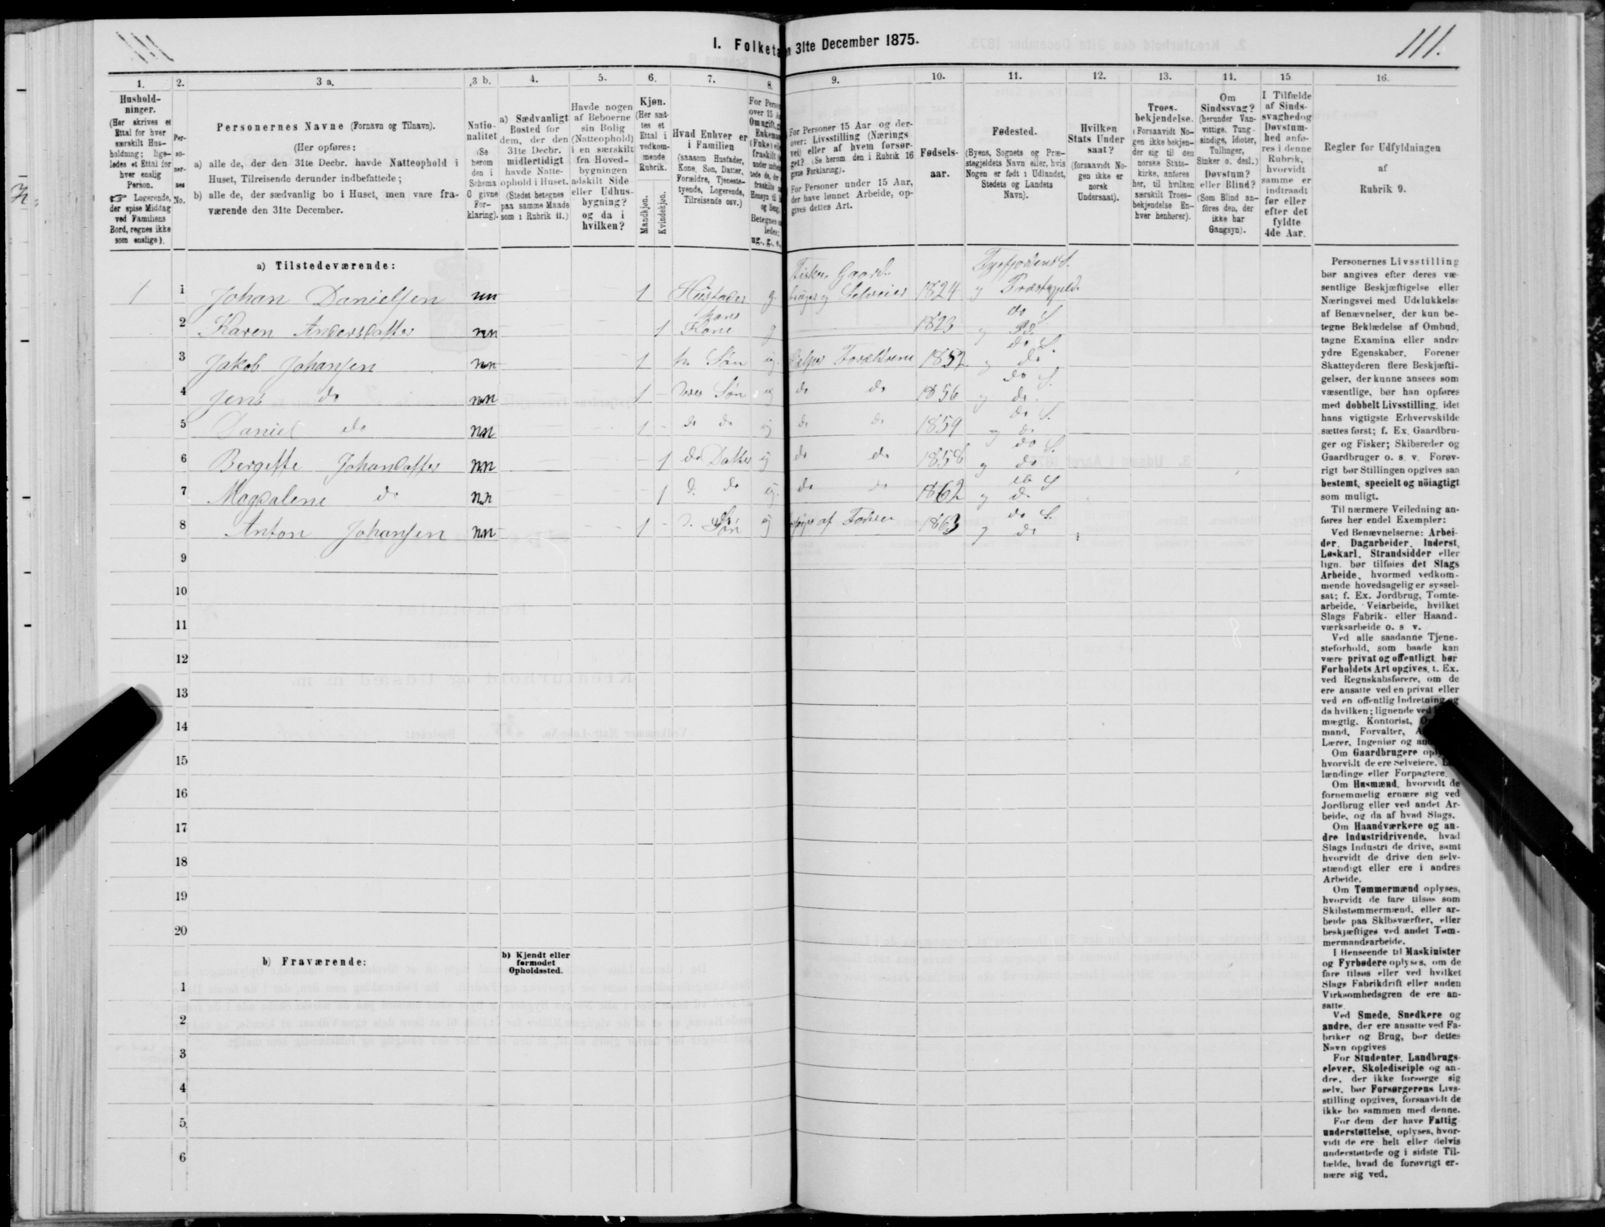 111.
I. Folketa n 31te December 1875.
1.
2.
3 a.
3 b.
4.
5.
6.
7.
8.
9.
10.
11.
12.
13.
14.
15
16.
Hushold-
ninger.
(Her skrives et
Ettal for hver
særskilt Hus-
holdning; lige-
ledes et Ettal for
hver enslig
Person.
☞ Logerende,
der spise Middag
ved Familiens
Bord, regnes ikke
som enslige).
Per-
so-
ner-
nes
No.
Personernes Navne (Fornavn og Tilnavn).
(Her opføres:
a) alle de, der den 31te Decbr. havde Natteophold i
Huset, Tilreisende derunder indbefattede;
b) alle de, der sædvanlig bo i Huset, men vare fra-
værende den 31te December.
Natio-
nalitet
(Se
herom
den i
Schema
0 givne
For-
klaring).
a) Sædvanligt
Bosted for
dem, der den
31te Decbr.
midlertidigt
havde Natte-
ophold i Huset.
(Stedet betegnes
paa samme Maade
som i Rubrik 11.)
Havde nogen
af Beboerne
sin Bolig
(Natteophold)
i en særskilt
fra Hoved-
bygningen
adskilt Side-
eller Udhus-
bygning?
og da i
hvilken?
Kjøn.
(Her sæt-
tes et
Ettal i
vedkom-
mende
Rubrik.
Mandkjøn.
Kvindekjøn.
Hvad Enhver er
i Familien
(saasom Husfader,
Kone, Søn, Datter,
Forældre, Tjeneste-
tyende, Logerende,
Tilreisende osv.)
For Personer 15 Aar og der-
over: Livsstilling (Nærings
vei) eller af hvem forsør-
get? (Se herom den i Rubrik 16
givne Forklaring).
For Personer under 15 Aar,
der have lønnet Arbeide, op-
gives dettes Art.
Fødsels-
aar.
Fødested.
(Byens, Sognets og Præ-
stegjeldets Navn eller, hvis
Nogen er født i Udlandet,
Stedets og Landets
Navn).
Hvilken
Stats Under
saat?
(forsaavidt No-
gen ikke er
norsk
Undersaat).
Troes-
bekjendelse.
(Forsaavidt No-
gen ikke bekjen-
der sig til den
norske Stats-
kirke, anføres
her, til hvilken
særskilt Troes-
bekjendelse En-
hver henhører).
Om
Sindssvag?
(herunder Van-
vittige, Tung-
sindige, Idioter,
Tullinger,
Sinker o. desl.)
Døvstum?
eller Blind?
(Som Blind an-
føres den, der
ikke har
Gangsyn).
I Tilfælde
af Sinds-
svaghed og
Døvstum-
hed anfø-
res i denne
Rubrik,
hvorvidt
samme er
indtraadt
før eller
efter det
fyldte
4de Aar.
Regler for Udfyldningen
af
Rubrik 9.
a) Tilstedeværende:
1 1 Johan Danielsen nn 1 Husfader g Fisker, Gaard-
bruger og Selveier 1824
2 Karen Andersdatter nn 1 Hans
Kone g 1823 do S.
3 Jakob Johansen nn 1 Søn ug hjelper Forældrene 1852 do S.
4 Jens do nn 1 Søn ug do do 1856 do S.
5 Daniel do nn 1 do do ug do do 1859 do S.
6 Bergitte Johansdatter nn 1 do Datter ug do do 1858 do S.
7 Magdalene do nn 1 do ug do do 1862 do S.
8 Anton Johansen nn 1 Søn ug af Faderen 1863 do S.
9
10
11
12
13
14
15
16
17
18
19
20
b) Fraværende:
b) Kjendt eller
formodet
Opholdssted.
1
2
3
4
5
6
Personernes Livsstilling
bør angives efter deres væ-
sentlige Beskjæftigelse eller
Næringsvei med Udelukkelse
af Benævnelser, der kun be-
tegne Beklædelse af Ombud,
tagne Examina eller andre
ydre Egenskaber. Forener
Skatteyderen flere Beskjæfti-
gelser, der kunne ansees som
væsentlige, bør han opføres
med dobbelt Livsstilling, idet
hans vigtigste Erhvervskilde
sættes først; f. Ex. Gaardbru-
ger og Fisker; Skibsreder og
Gaardbruger o. s. v. Forøv-
rigt bør Stillingen opgives saa
bestemt, specielt og nöiagtigt
som muligt.
Til nærmere Veiledning an-
føres her endel Exempler:
Ved Benævnelserne: Arbei-
der, Dagarbeider, Inderst,
Løskarl, Strandsidder eller
lign. bør tilføies det Slags
Arbeide, hvormed vedkom-
mende hovedsagelig er syssel-
sat; f. Ex. Jordbrug, Tomte-
arbeide, Veiarbeide, hvilket
Slags Fabrik- eller Haand-
værksarbeide o. s v.
Ved alle saadanne Tjene-
steforhold, som baade kan
være privat og offentligt, bør
Forholdets Art opgives, t. Ex.
ved Regnskabsførere, om de
ere ansatte ved en privat eller
ved en offentlig Indretning og
da hvilken; lignende ved
mægtig, Kontorist,
mand, Forvalter,
Lærer, Ingeniør og
Om Gaardbrugere
hvorvidt de ere Selveiere,
lændinge eller Forpagtere.
Om Husmænd, hvorvidt de
fornemmelig ernære sig ved
Jordbrug eller ved andet Ar-
beide, og da af hvad Slags.
Om Haandværkere og an-
dre Industridrivende, hvad
Slags Industri de drive, samt
hvorvidt de drive den selv-
stændigt eller ere i andres
Arbeide.
Om Tømmermænd oplyses,
hvorvidt de fare tilsøs som
Skibstømmermænd, eller ar-
beide paa Skibsværfter, eller
beskjæftiges ved andet Tøm-
mermandsarbeide.
I Henseende til Maskinister
og Fyrbødere oplyses, om de
fare tilsøs eller ved hvilket
Slags Fabrikdrift eller anden
Virksomhedsgren de ere an-
satte
Ved Smede, Snedkere og
andre, der ere ansatte ved Fa-
briker og Brug, bør dettes
Navn opgives
For Studenter, Landbrugs-
elever, Skoledisciple og an-
dre, der ikke forsørge sig
selv, bør Forsørgerens Livs-
stilling opgives, forsaavidt de
ikke bo sammen med denne.
For dem der have Fattig-
understøttelse, oplyses, hvor-
vidt de ere helt eller delvis
understøttede og i sidste Til-
fælde, hvad de forøvrigt er-
nære sig ved.